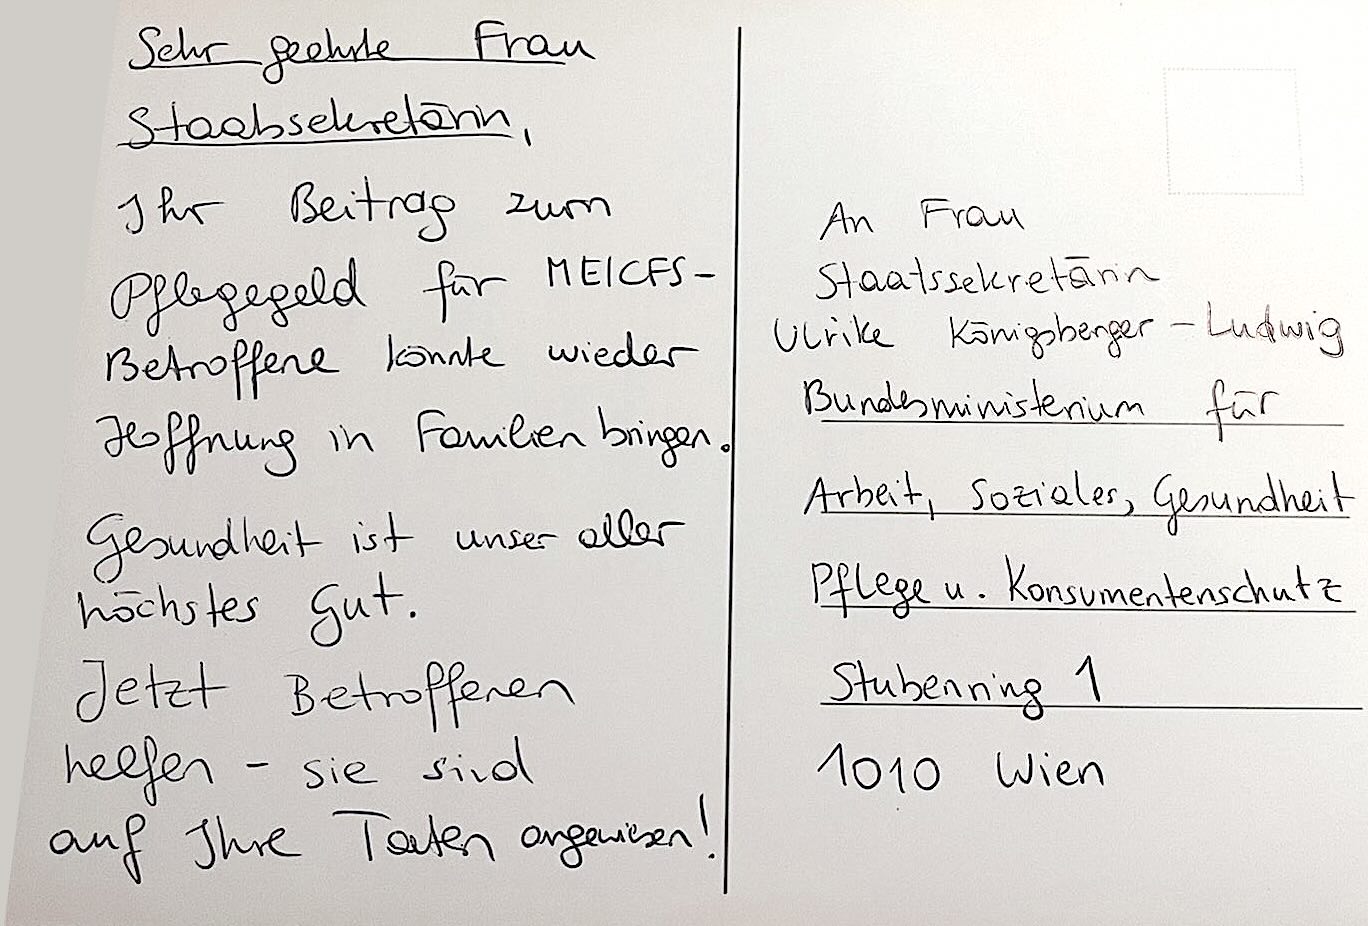 Sehr geehrte Frau
Staatssekretärin,
Ihr Beitrag zum
Pflegegeld für ME/CFS-
Betroffene könnte wieder
Hoffnung in Familien bringen.
Gesundheit ist unser aller
höchstes Gut.
Jetzt Betroffenen
helfen - sie sind
auf Ihre Taten angewiesen!
An Frau
Staatssekretärin
Ulrike Königsberger-Ludwig
Bundesministerium für
Arbeit, Soziales, Gesundheit
Pflege u. Konsumentenschutz
Stubenring 1
1010 Wien